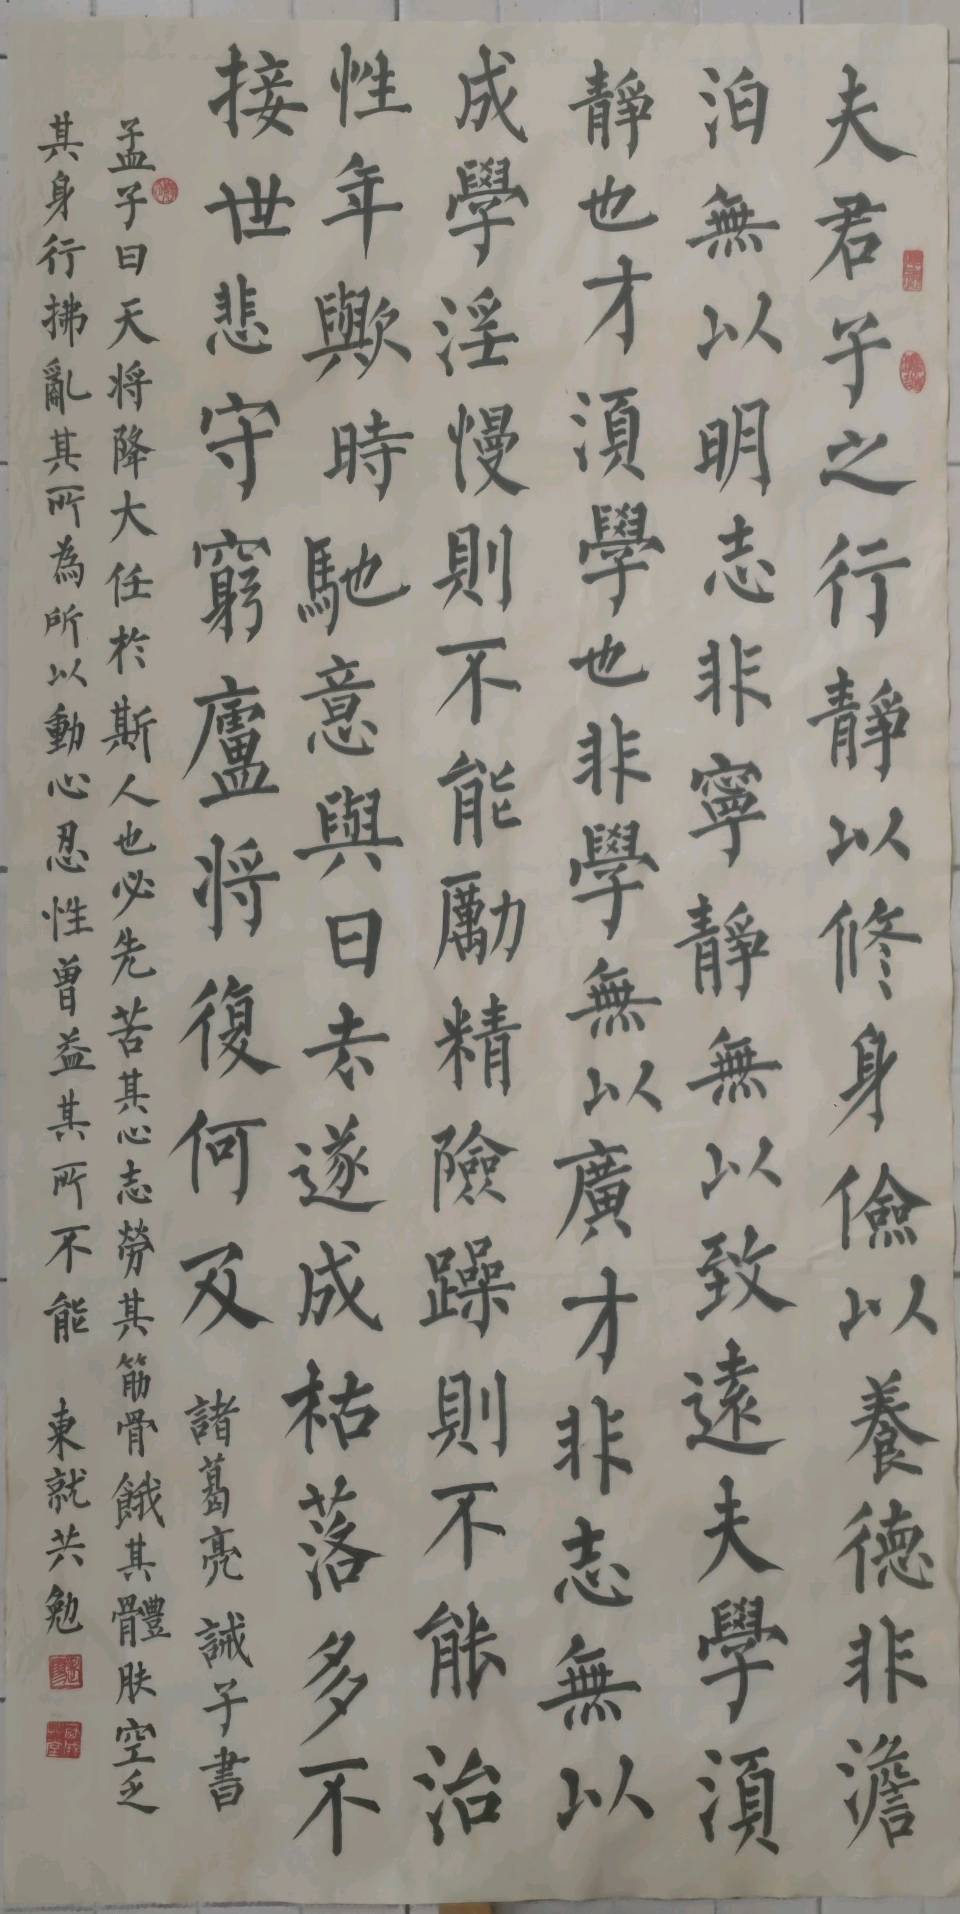 夫君子之行靜以修身儉以養德非澹
泊無以明志非寧靜無以致遠夫學須
靜也才須學也非學無以廣才非志無以
成學淫慢則不能勵精險躁則不能治
性年歟時馳意與日去遂成枯落多不
接世悲守窮廬將復何及
諸葛亮誡子書
孟子曰天将降大任於斯人也必先苦其心志勞其筋骨餓其體肤空乏
其身行拂亂其所為所以動心忍性曾益其所不能 東就共勉